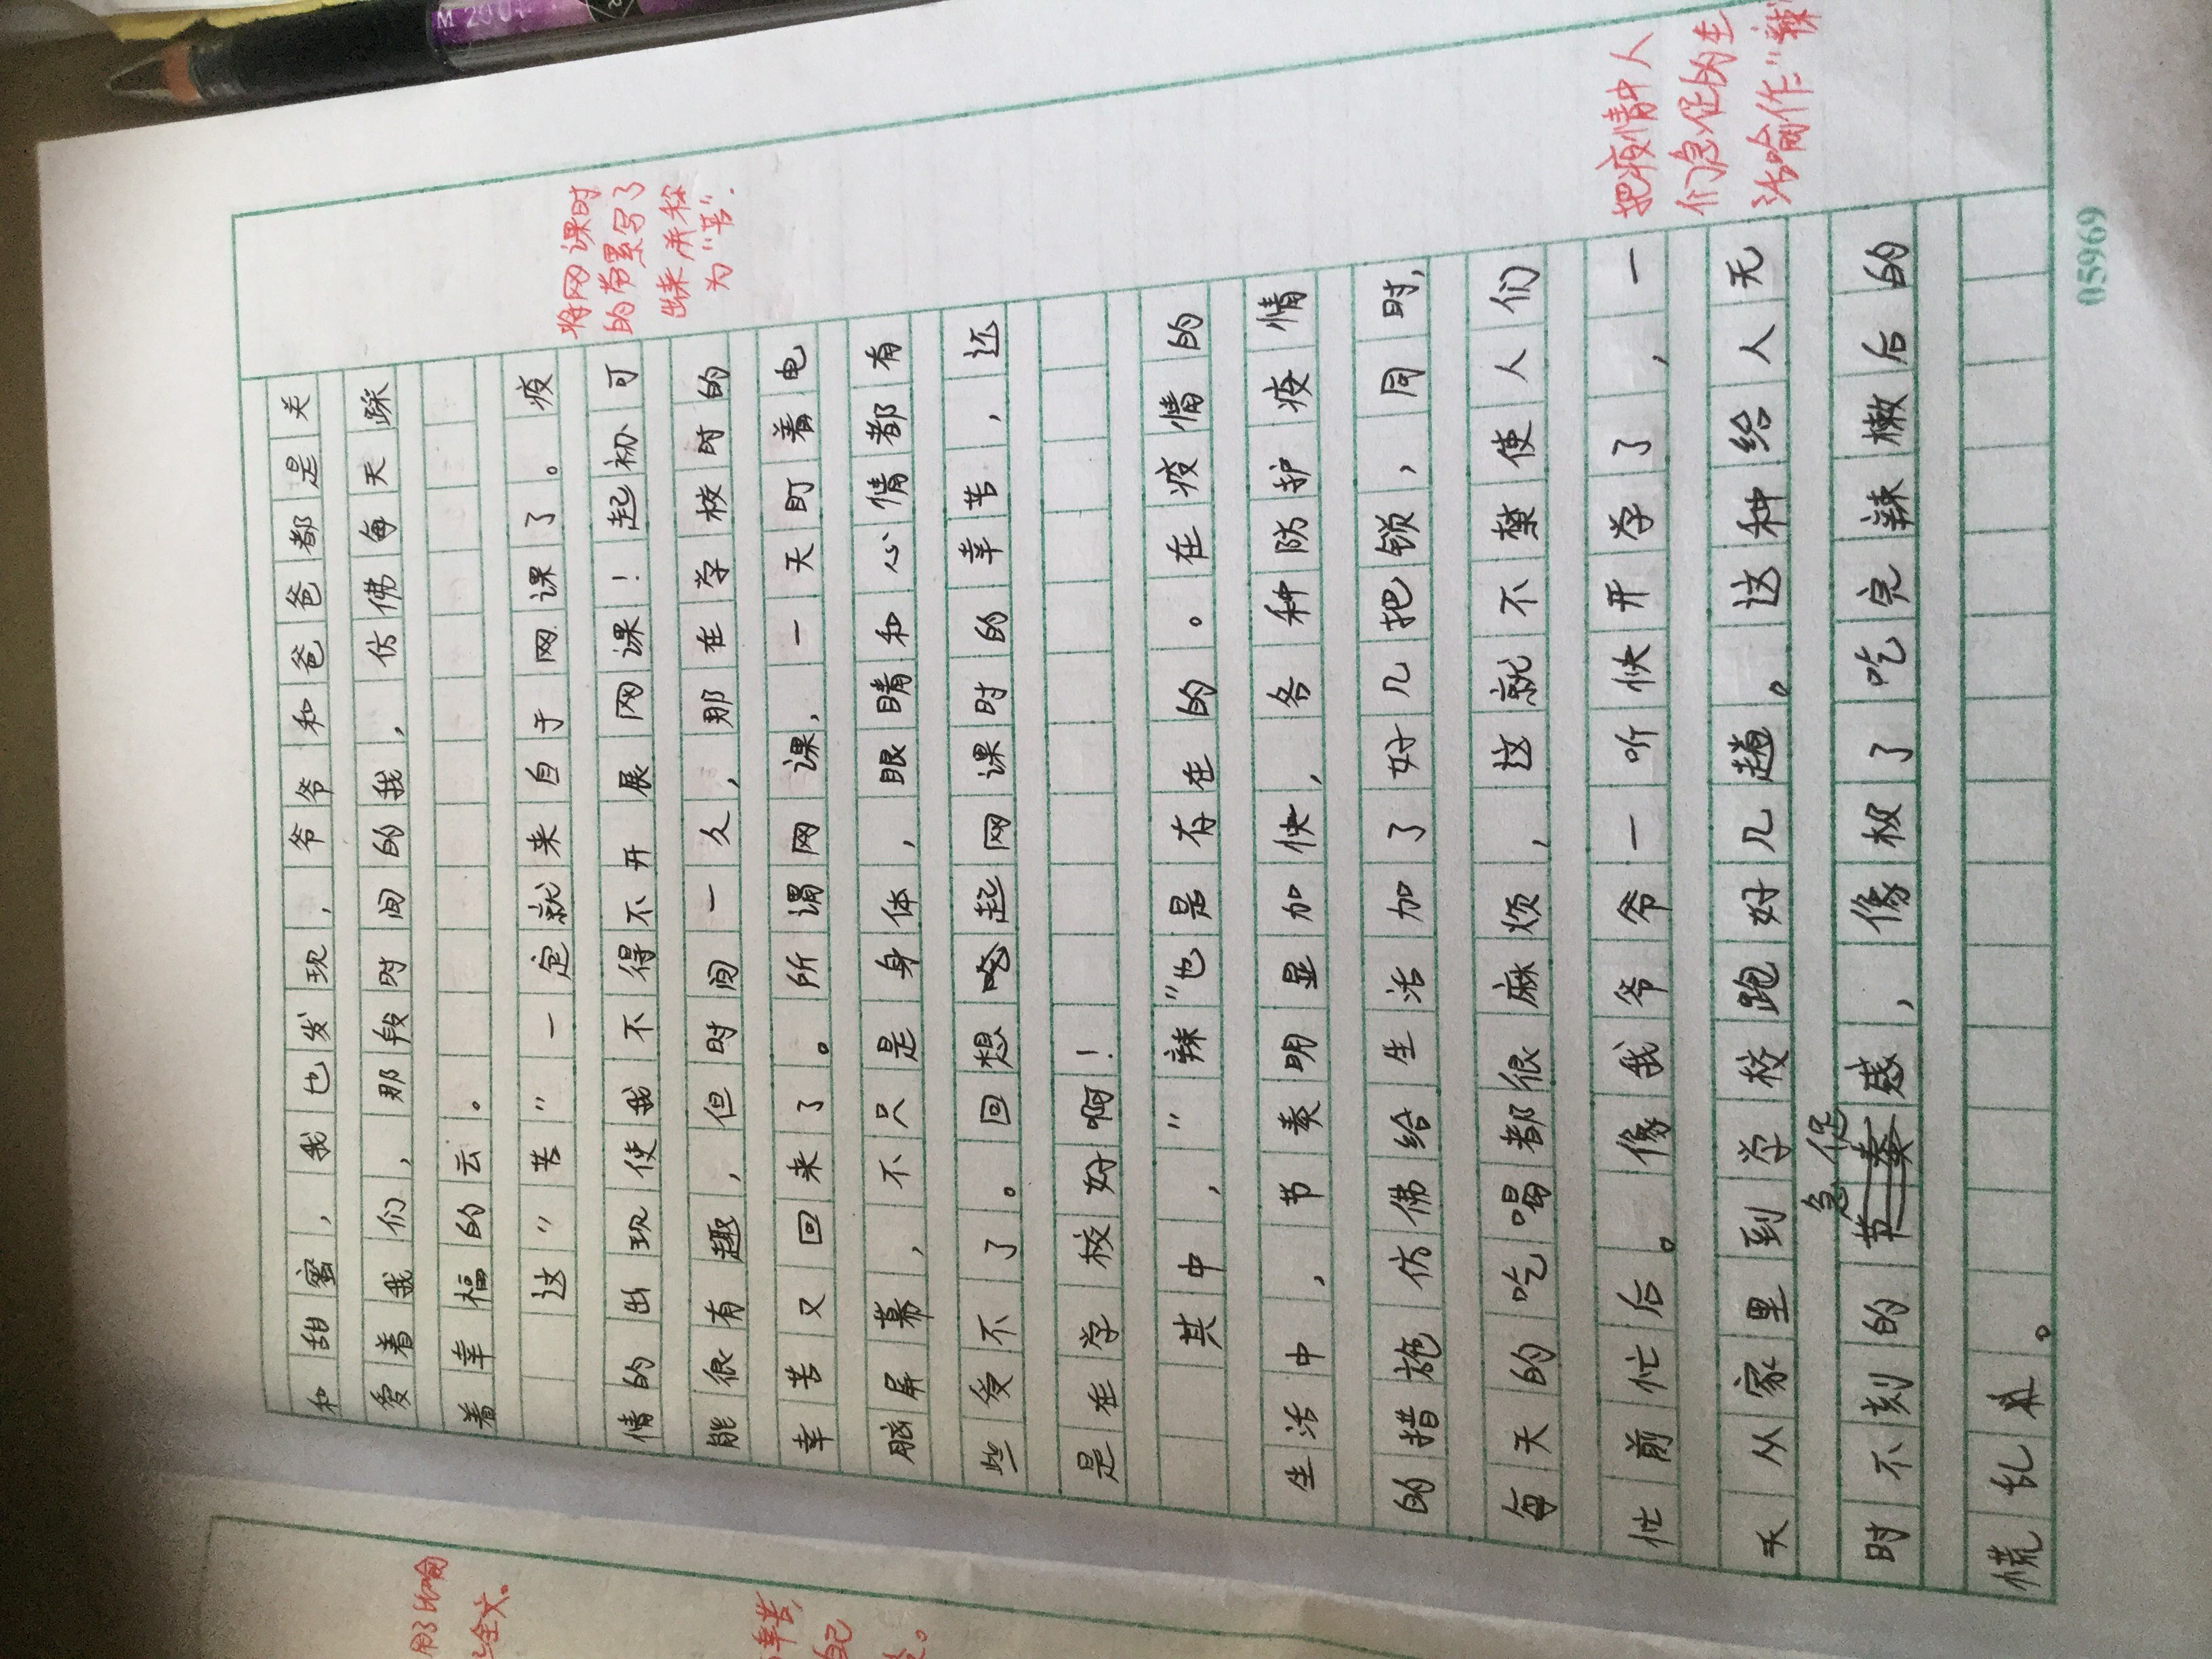 和甜蜜，我也发现，爷爷和爸爸都是关
爱着我们，那段时间的我，仿佛每天踩
着幸福的云。
这“苦”一定就来自于网课了。疫
情的出现使我不得不开展网课！起初可
能很有趣，但时间一久，那在学校时的
幸苦又回来了。所谓网课，一天盯着电
脑屏幕，不只是身体，眼睛和心情都有
些受不了。回想起网课时的幸苦，还
是在学校好啊！
其中，“辣”也是存在的。在疫情的
生活中，节奏明显加快，各种防护疫情
的措施仿佛给生活加了好几把锁，同时，
每天的吃喝都很麻烦，这就不禁使人们
忙前忙后。像我爷爷一听快开学了，一
天从家里到学校跑好几趟。这种给人无
时不刻的急促感，像极了吃完辣椒后的
慌乱。
将网课时
的劳累写了
出来并称
为“苦”.
把疫情中人
们急促的生
活喻作“辣
05969
用了比喻
全文。
幸苦,
自己
M 200